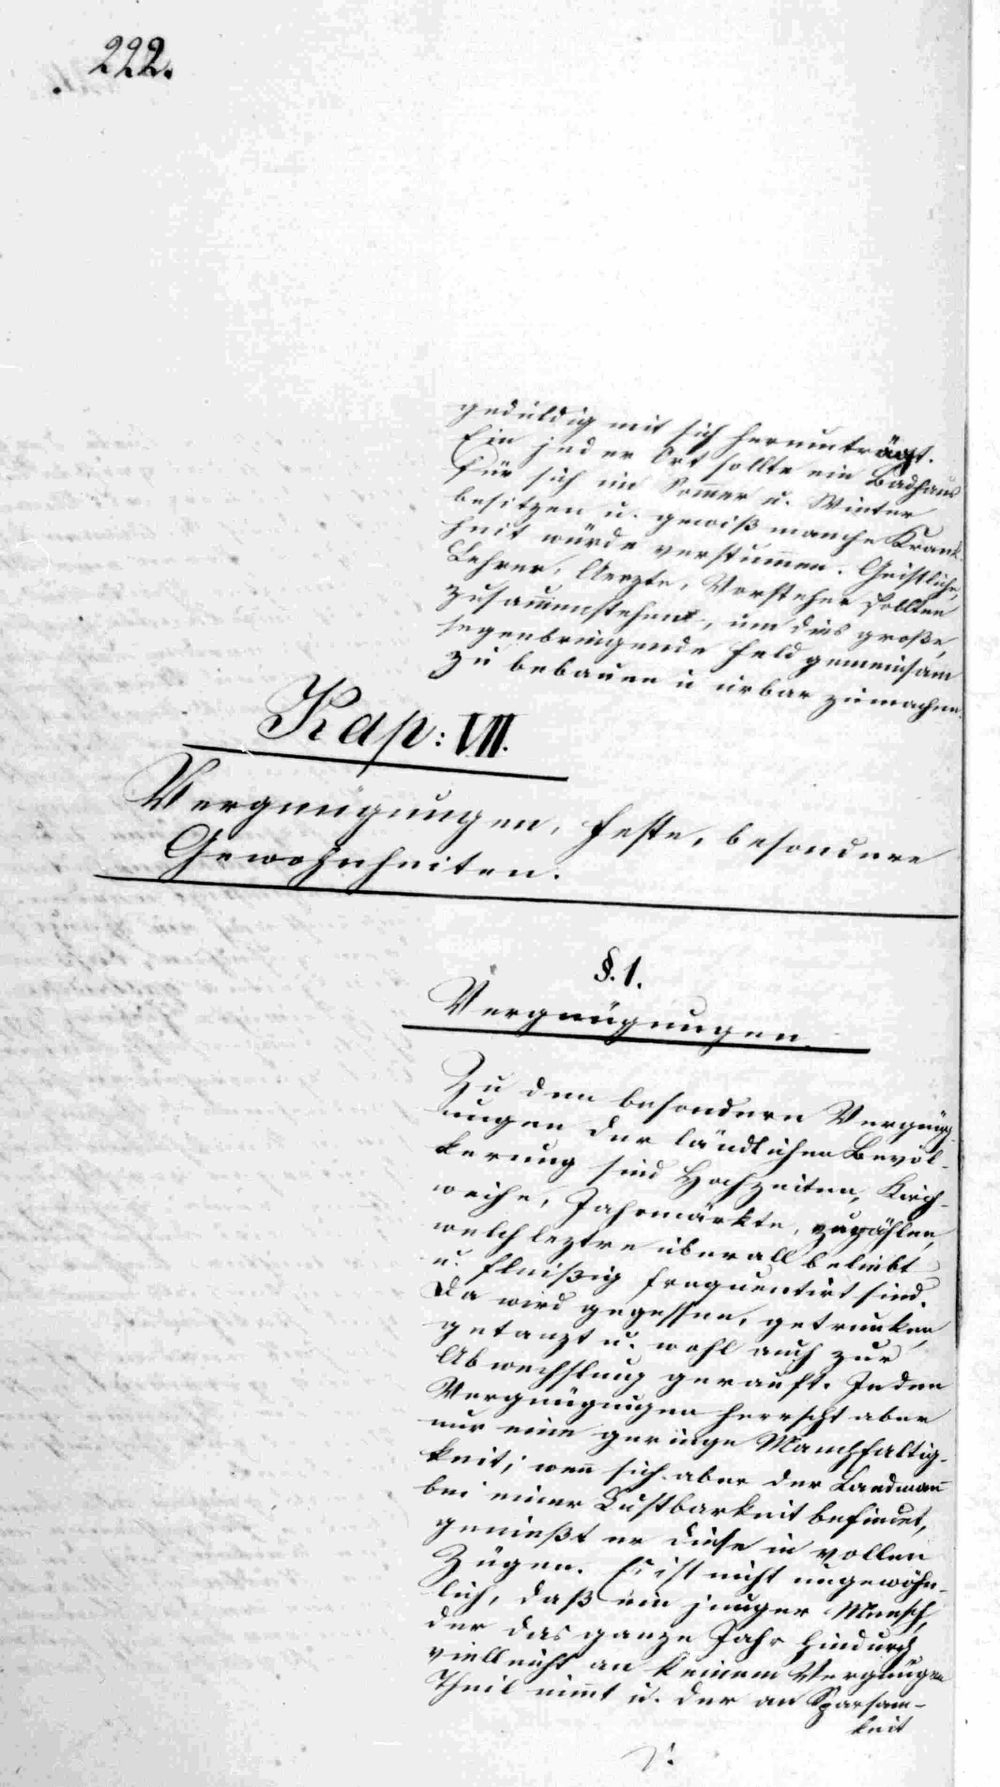 222.
geduldig mit sich herumträgt.
Ein jeder Ort sollte ein Badhaus
für sich im Som̄er u. Winter
besitzen u. gewiß manche Krank-
heit würde verstum̄en. Geistliche,
Lehrer, Aerzte, Vorsteher sollten
zusam̄enstehen, um dies große,
segenbringende Feld gemeinsam
zu bebauen u urbar zumachen.
Kap: VII.
Vergnügungen, Feste, besondere
Gewohnheiten.
§. 1.
Vergnügungen.
Zu den besondern Vergnüg-
ungen der ländlichen Bevöl-
kerung sind Hochzeiten, Kirch-
weihe, Jahrmärkte, zuzählen,
welch leztre überall beliebt
u. fleißig frequentirt sind.
Da wird gegessen, getrunken,
getanzt u. wohl auch zur
Abwechslung gerauft. In den
Vergnügungen herrscht aber
nur eine geringe Manchfaltig-
keit; wen̄ sich aber der Landman̄
bei einer Lustbarkeit befindet,
genießt er diese in vollen
Zügen. Es ist nicht ungewöhn-
lich, daß ein junger Mensch,
der das ganze Jahr hindurch
vielleicht an keinem Vergnügen
Theil nim̄t u. der an Sparsam-
keit